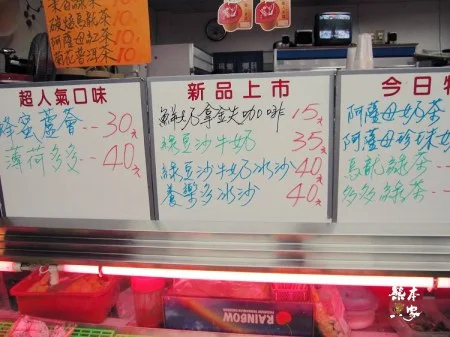 炭焙烏龍茶10元
阿薩母紅茶10元
菊花普洱茶10元
超人氣口味
蜂蜜蘆薈--30元
薄荷多多--40元
新品上市
鮮奶拿鐵咖啡 15元
綠豆沙牛奶 35元
綠豆沙牛奶冰沙 40元
養樂多冰沙 40元
今日特
阿薩母奶茶
阿薩母珍珠奶
烏龍綠茶
多多綠茶
RAINBOW
熊本一家